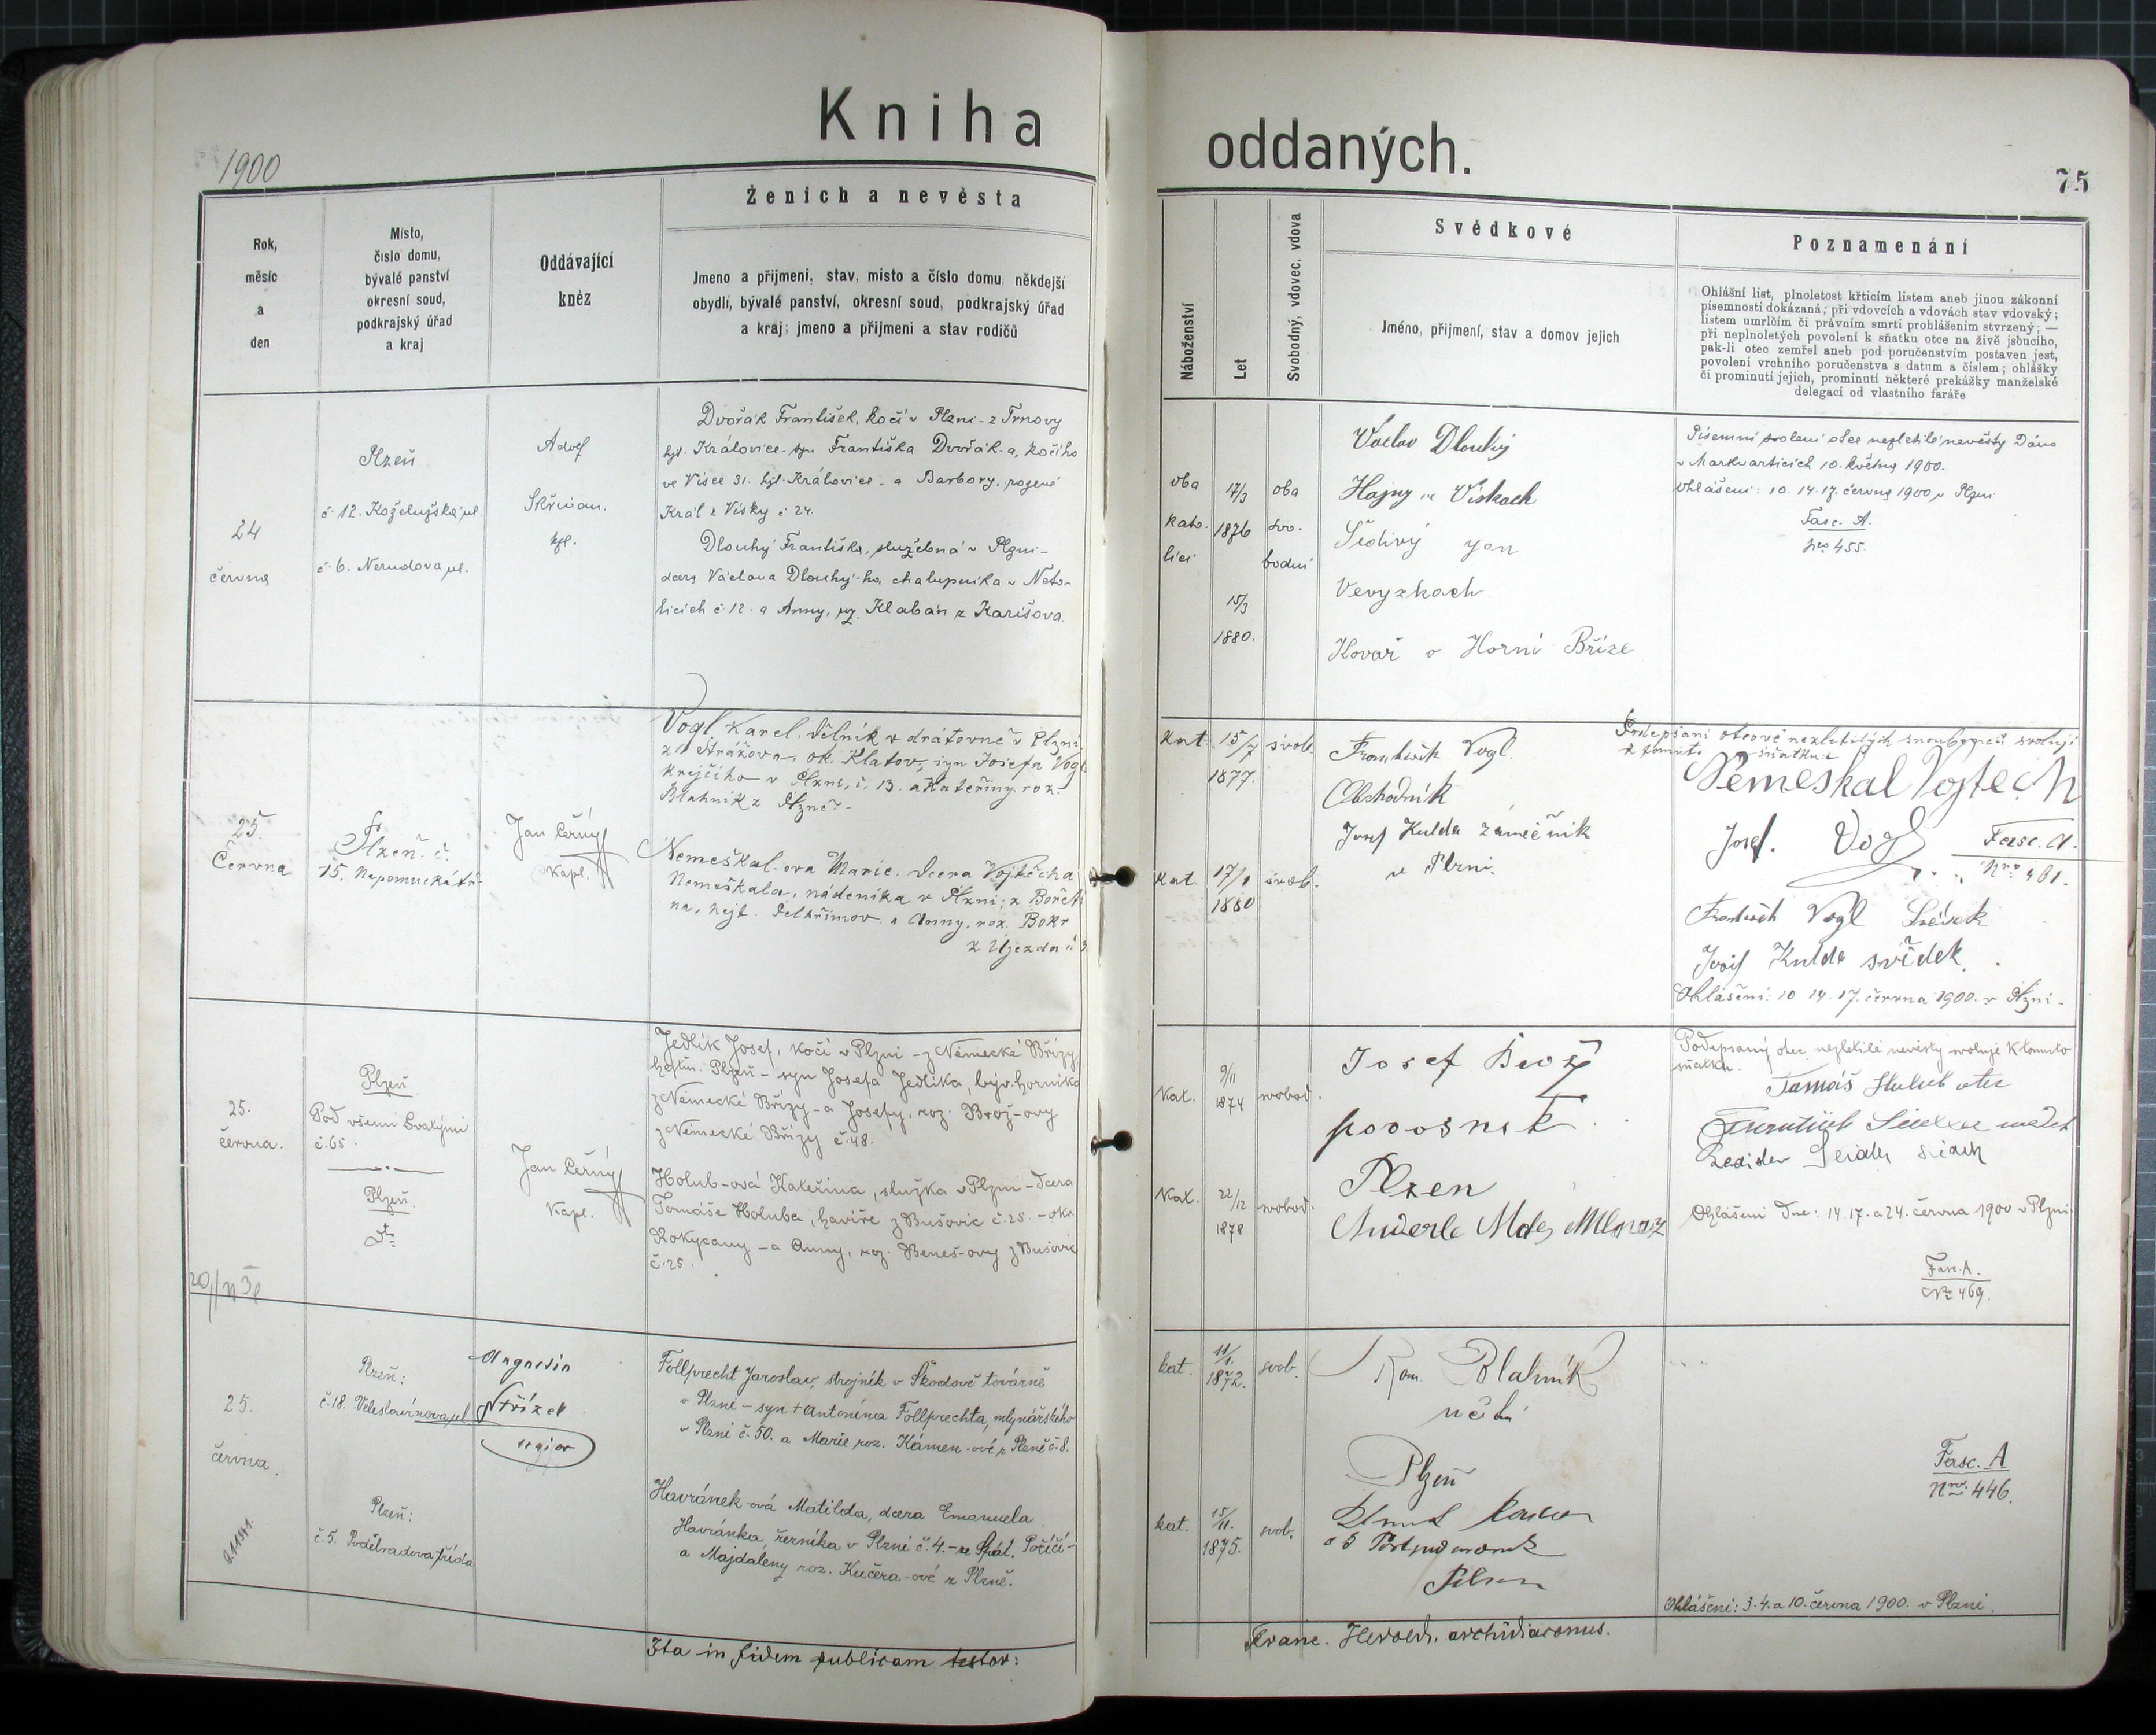 Kniha oddaných.
1900
75
Rok,
měsíc
a
den
Místo,
číslo domu,
bývalé panství
okresní soud,
podkrajský úřad
a kraj
Oddávající
kněz
Ženich a nevěsta
Jmeno a přijmení, stav, místo a číslo domu, někdejší
obydlí, bývalé panství, okresní soud, podkrajský úřad
a kraj; jmeno a přijmení a stav rodičů
Náboženství
Let
Svobodný, vdovec, vdova
Svědkové
Jméno, přijmení, stav a domov jejich
Poznamenání
Ohlášní list, plnoletost křticím listem aneb jinou zákonní
písemností dokázaná; při vdovcích a vdovách stav vdovský;
listem umrlčím či právním smrti prohlášením stvrzený; —
při neplnoletých povolení k sňatku otce na živě jsoucího,
pak-li otec zemřel aneb pod poručenstvím postaven jest,
povolení vrchního poručenstva s datum a číslem; ohlášky
či prominutí jejich, prominutí některé prekážky manželské
delegací od vlastního faráře
24
června
Plzeň
č. 12. Koželužská ul
č. 6. Nerudova ul.
Adolf
kpl.
Dvořák František, kočí v Plzni - z Trnovy
hjt. Královice - syn Františka Dvořák-a, kočího
ve Vísce 31. hjt. Královice - a Barbory, rozené
Král z Vísky č 24.
Dlouhý Františka, služebná v Plzni -
dcera Václava Dlouhý-ho, chalupníka v Neto-
licích č 12. a Anny, roz. Klabán z Karišova.
oba
kato-
líci
17/3
1876
15/3
1880.
oba
svo-
bodní
Václav Dlouhý
Hajny ve Vískach
Šedivý Jan
Vevyzkach
Kovář v Horní Bříze
Písemní svolení otce nezletilé nevěsty dáno
v Markvarticích 10. května 1900.
Ohlášení: 10. 14. 17. června 1900 v Plzni
Fasc. A.
nro 455.
25.
Června
Plzeň. č.
15. Nepomucká tř.
Jan Černý
Kapl.
Vogl Karel, dělník v drátovně v Plzni
z Strážova, ok. Klatov, syn Josefa Vogl
krejčího v Plzni, č. 13. a Kateřiny, roz.
Blahník z Plzně. -
Nemeškal-ova Marie. Dcera Vojtěcha
Nemeškala, nádeníka v Plzni; z
na, hejt. Pelhřimov a Anny, roz. Bokr
z Újezda č. 3
Kat.
15/7
1877.
svob.
Kat.
17/1
1880
svob.
František Vogl.
Obchodník
Josef Kulda zámečník
v Plzni.
Podepsaní otcové nezletilých snoubenců svolují
k tomuto sňatku:
Nemeskal Vojtech
Josef. Vogl
Fasc. A.
Nro 461.
František Vogl Svědek
Josef Kulda svědek.
Ohlášení: 10 14. 17. června 1900. v Plzni -
25.
června.
Plzeň
Pod všemi Svatými
č. 65.
Plzeň.
dto
Jan Černý
Kapl.
Jedlík Josef, kočí v Plzni - z Německé Břízy,
hejtm. Plzeň - syn Josefa Jedlíka, býv. horníka
z Německé Břízy - a Josefy, roz. Brož-ovy
z Německé Břízy č. 48.
Holub-ová Kateřina, služka v Plzni - dcera
Tomáše Holuba, havíře z Bušovic č. 25. - okr.
Rokycany - a Anny, roz. Beneš-ovy z Bušovic
č. 25.
Kat.
9/11
1874
svobod.
Kat.
22/12
1878
svobod.
Josef Brož
povosnik
Plzen
Anderle
Podepsaný otec nezletilé nevěsty svoluje k tomuto
sňatku.
Tomáš Holub otec
Ohlášení dne: 14. 17. a 24. června 1900 v Plzni.
Fasc. A.
Nro 469.
25.
června.
Plzeň:
č. 18. Veleslavínova ul
Plzeň:
č. 5. Poděbradova třída
Augustin
Střízek
senior
Follprecht Jaroslav, strojník v Škodově továrně
v Plzni - syn + Antonína Follprechta, mlynářského
v Plzni č. 50. a Marie roz. Kámen-ové z Plzně č. 8.
Havránek-ová Matilda, dcera Emanuela
Havránka, řezníka v Plzni č. 4. - ze Spál. Poříčí -
a Majdaleny roz. Kučera-ové z Plzně.
kat.
11/1.
1872.
svob.
kat.
15/11.
1875.
svob.
Rom. Blahník
Plzeň
Pilsen
Fasc. A
Nro: 446.
Ohlášení: 3. 4. a 10. června 1900. v Plzni.
Ita in fidem publicam testor:
Franc. Herold, archidiaconus.